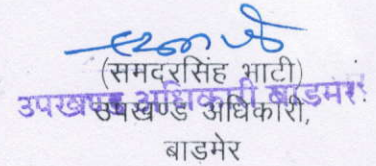 (समदरसिंह भाटी)
उपखण्ड अधिकारी बाडमेर
उपखण्ड अधिकारी,
बाडमेर